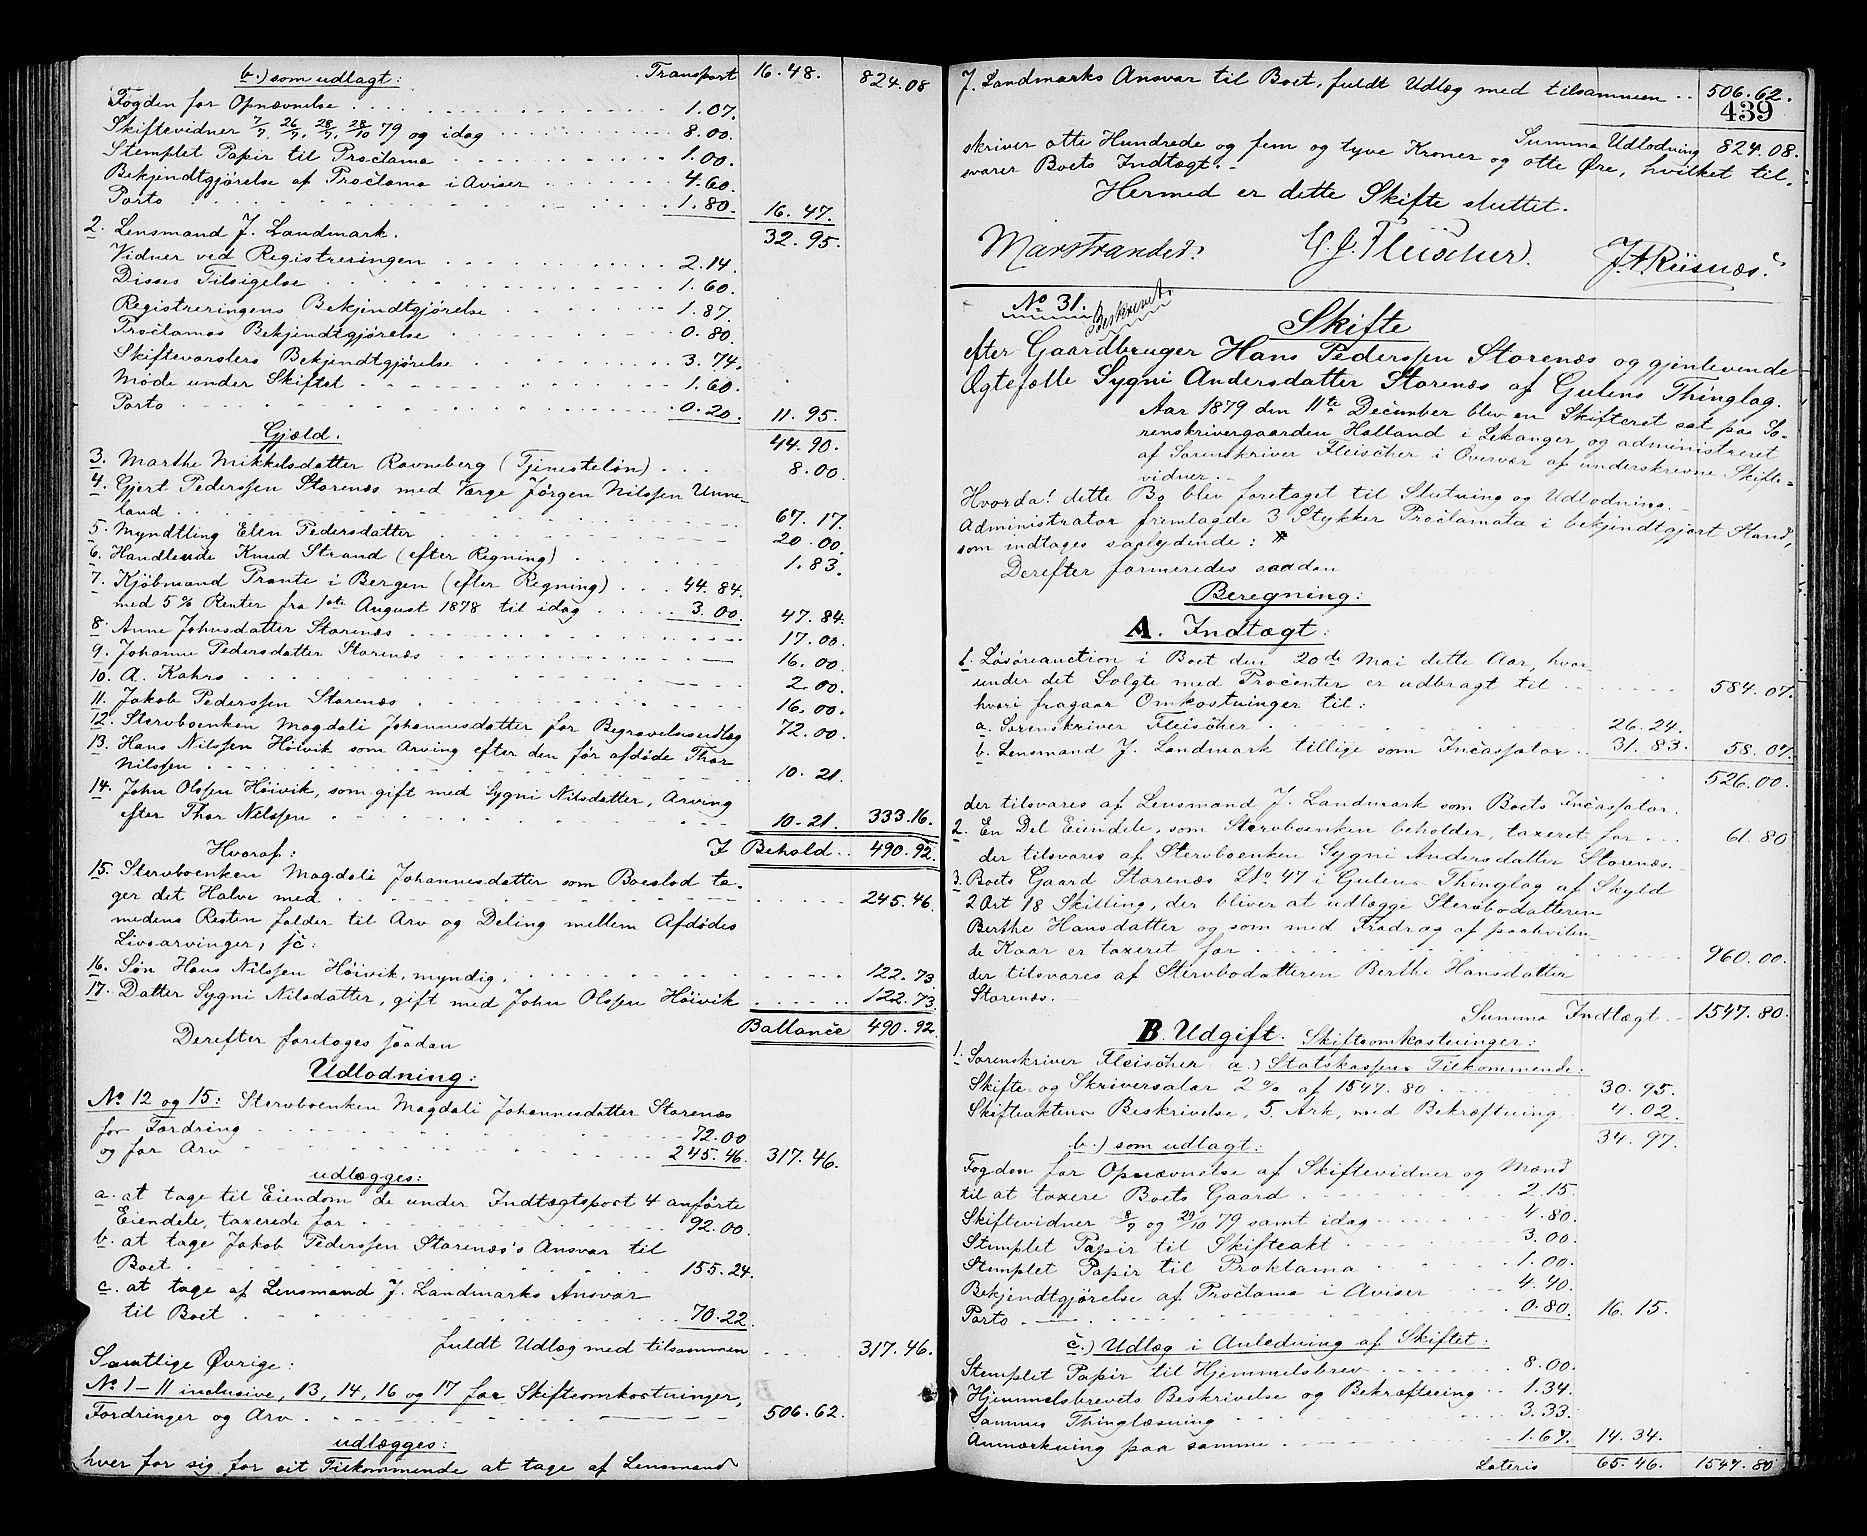 b.) som udlagt: Transport 16.48. 824.08
Fogden for Opnævnelse 1.07.
Skiftevidner 7/7, 26/7, 28/7, 28/10 79 og idag 8.00.
Stemplet Papir til Proclama 1.00.
Bekjendtgjørelse af Proclama i Aviser 4.60.
Porto 1.80. 16.47.
2. Lensmand J. Landmark. 32.95.
Vidner ved Registreringen 2.14.
Disses Tilsigelse 1.60.
Registreringens Bekjendtgjørelse 1.87.
Proclamas Bekjendtgjørelse 0.80.
Skiftevarslers Bekjendtgjørelse 3.74.
Møde under Skiftet 1.60.
Porto 0.20. 11.95.
Gjæld. 44.90.
3. Marthe Mikkelsdatter Ravneberg (Tjenesteløn) 8.00.
4. Gjert Pederssen Storenæs med Værge Jørgen Nilssen Unne-
land 67.17.
5. Myndtling Elen Pedersdatter 20.00.
6. Handlende Knud Strand (efter Regning) 1.83.
7. Kjøbmand Trante i Bergen (efter Regning) 44.84.
med 5% Renter fra 1ste August 1878 til idag 3.00. 47.84.
8. Anne Johnsdatter Storenæs 17.00.
9. Johanne Pedersdatter Storenæs 16.00.
10. A. Kahrs 2.00.
11. Jakob Pederssen Storenæs 16.00.
12. Stervboenken Magdali Johannesdatter for Begravelsesudlæg 72.00.
13. Hans Nilssen Høivik som Arving efter den før afdøde Thor
Nilssen 10.21.
14. John Olssen Høivik, som gift med Sygni Nilsdatter, Arving
efter Thor Nilssen 10.21. 333.16.
I Behold 490.92.
Hvoraf:
15. Stervboenken Magdali Johannesdatter som Boeslod ta-
ger det Halve med 245.46.
medens Resten falder til Arv og Deling mellem Afdødes
Livsarvinger, sc:
16. Søn Hans Nilssen Høivik, myndig, 122.73.
17. Datter Sygni Nilsdatter, gift med John Olssen Høivik 122.73.
Ballance 490.92.
Derefter foretoges saadan
Udlodning:
No 12 og 15: Stervboenken Magdali Johannesdatter Storenæs
for Fordring 72.00
og for Arv 245.46. 317.46.
udlægges:
a. at tage til Eiendom de under Indtægtspost 4 anførte
Eiendele, taxerede for 92.00.
b. at tage Jakob Pederssen Storenæs's Ansvar til
Boet 155.24.
c. at tage af Lensmand J. Landmarks Ansvar
til Boet 70.22.
fuldt Udlæg med tilsammen 317.46.
Samtlige Øvrige:
No 1-11 inclusive, 13, 14, 16 og 17 for Skifteomkostninger,
Fordringer og Arv 506.62.
udlægges:
hver for sig for sit Tilkommende at tage af Lensmand
J. Landmarks Ansvar til Boet, fuldt Udlæg med tilsammen 506.62.
439
Summa Udlodning 824.08.
skriver otte Hundrede og fem og tyve Kroner og otte Øre, hvilket til-
svarer Boets Indtægt.
Hermed er dette Skifte sluttet.
Marstrander. C. J. Fleischer. J. A. Riisnæs.
No 31. Beskrevet.
Skifte
efter Gaardbruger Hans Pederssen Storenæs og gjenlevende
Ægtefælle Sygni Andersdatter Storenæs af Gulens Thinglag.
Aar 1879 den 11te December blev en Skifteret sat paa So-
renskrivergaarden Halland i Lekanger og administreret
af Sorenskriver Fleischer i Overvær af underskrevne Skifte-
vidner.
Hvorda! dette Bo blev foretaget til Slutning og Udlodning.
Administrator fremlagde 3 Stykker Proclamata i bekjendtgjort Stand,
som indtages saalydende: #
Derefter formeredes saadan
Beregning:
A. Indtægt:
1. Løsøreauction i Boet den 20de Mai dette Aar, hvor
under det Solgte med Procenter er udbragt til 584.07.
hvori fragaar Omkostninger til:
a. Sorenskriver Fleischer 26.24.
b. Lensmand J. Landmark tillige som Incassator 31.83. 58.07.
526.00.
der tilsvares af Lensmand J. Landmark som Boets Incassator.
2. En Del Eiendele, som Stervboenken beholder, taxeret for 61.80
der tilsvares af Stervboenken Sygni Andersdatter Storenæs.
3. Boets Gaard Storenæs LNo 47 i Gulens Thinglag af Skyld
2 Ort 18 Skilling, der bliver at udlægge Stervbodatteren
Berthe Hansdatter og som med Fradrag af paahvilen-
de Kaar er taxeret for 960.00.
der tilsvares af Stervbodatteren Berthe Hansdatter
Storenæs.
Summa Indtægt 1547.80.
B. Udgift. Skifteomkostninger:
1. Sorenskriver Fleischer a.) Statskassens Tilkommende:
Skifte og Skriversalær 2% af 1547.80 30.95.
Skifteaktens Beskrivelse, 5 Ark, med Bekræftning 4.02.
34.97.
b.) som udlagt:
Fogden for Opnævnelse af Skiftevidner og Mænd
til at taxere Boets Gaard 2.15.
Skiftevidner 8/7 og 29/10 79 samt idag 4.80.
Stemplet Papir til Skifteakt 3.00.
Stemplet Papir til Proklama 1.00.
Bekjendtgjørelse af Proclama i Aviser 4.40.
Porto 0.80. 16.15.
c.) Udlæg i Anledning af Skiftet:
Stemplet Papir til Hjemmelsbrev 8.00.
Hjemmelsbrevets Beskrivelse og Bekræftning 1.34.
Sammes Thinglæsning 3.33.
Anmærkning paa samme 1.67. 14.34.
Lateris 65.46. 1547.80